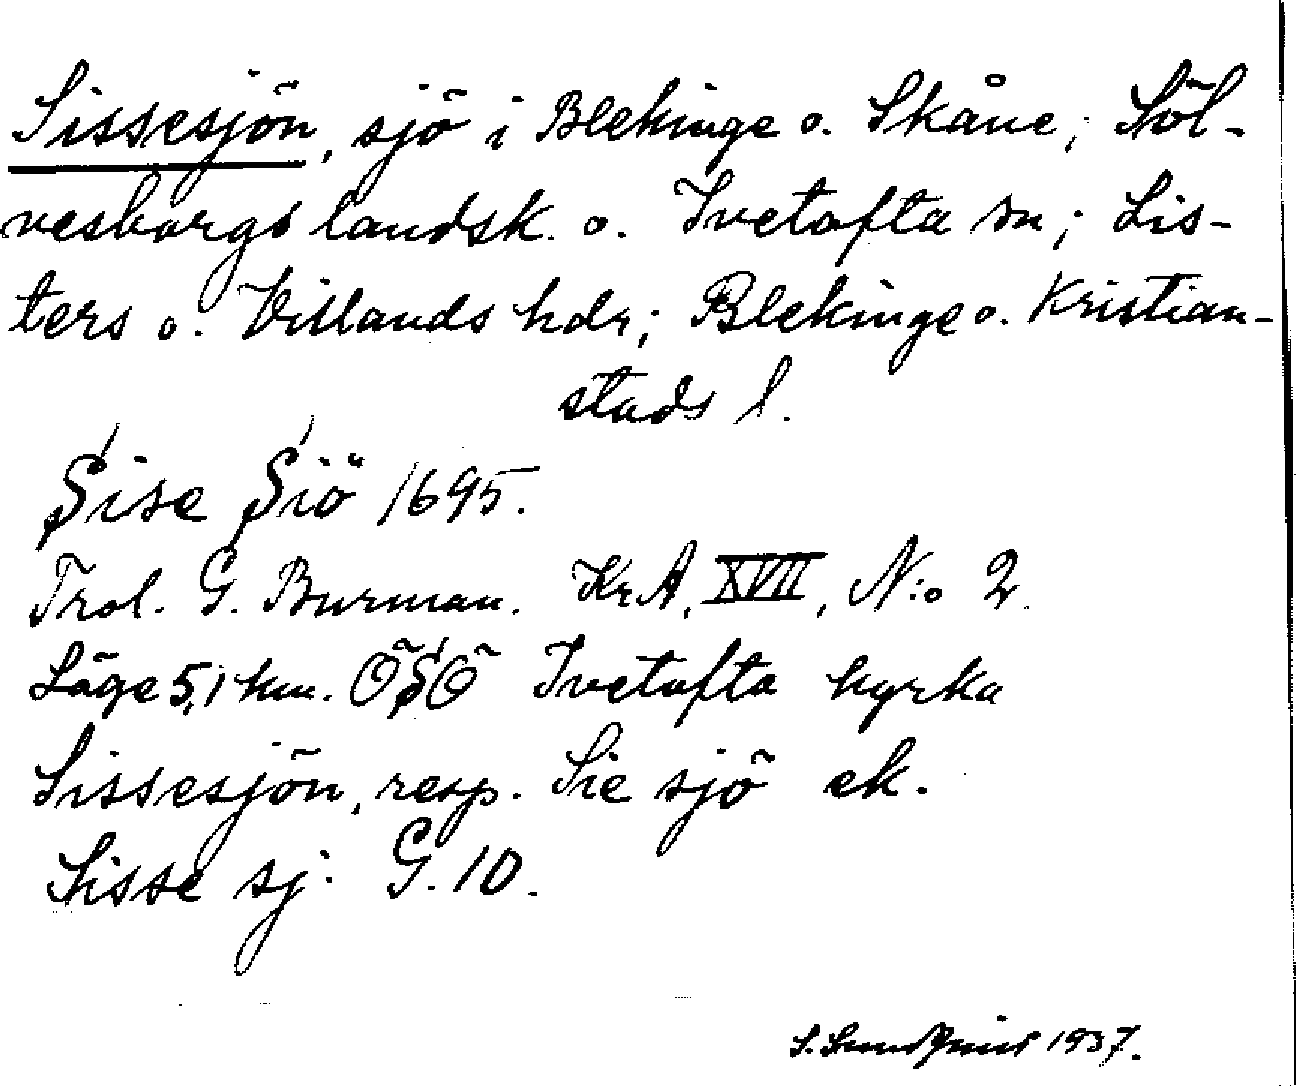 Sissesjön, sjö i Blekinge o. Skåne; Söl-
vesborgs landsk. o. Ivetofta sn; Lis-
ters o. Villands hdr; Blekinge o. Kristian-
stads l.
Sise Siö 1695.
Trol. G. Burman. KrA, XVII, N:o 2.
Läge 5,1 km. ÖSÖ Ivetofta kyrka
Sissesjön, resp. Sie sjö ek.
Sisse sj. G. 10.
S. Sundquist 1937.